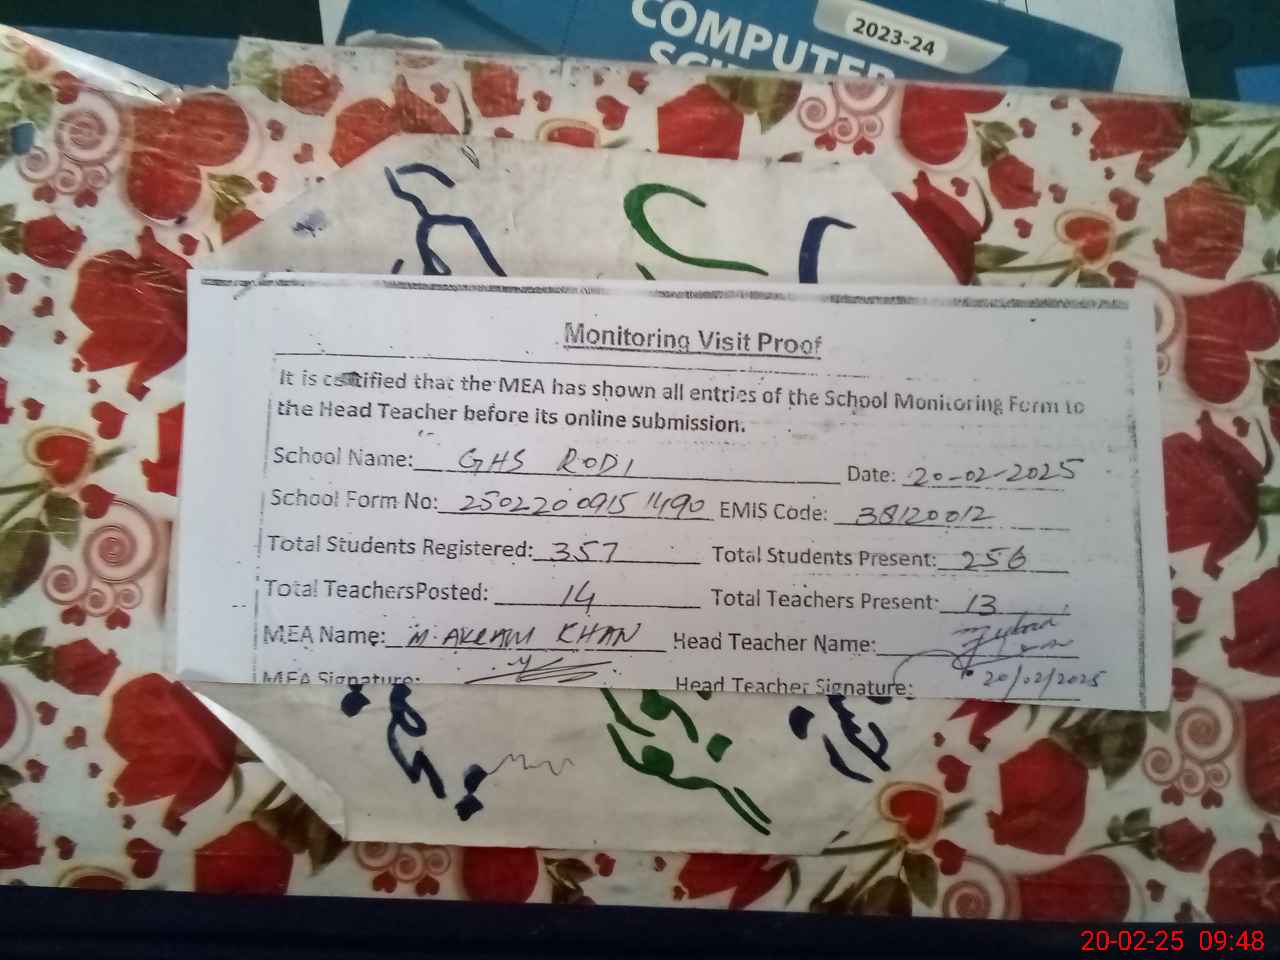 COMPUTER
2023-24
Monitoring Visit Proof
It is certified that the MEA has shown all entries of the School Monitoring Form to
the Head Teacher before its online submission.
School Name: GHS RODI Date: 20-02-2025
School Form No: 25022009151490 EMIS Code: 38120012
Total Students Registered: 357 Total Students Present: 256
Total TeachersPosted: 14 Total Teachers Present: 13
MEA Name: M. AKRAM KHAN Head Teacher Name:
MEA Signature: Head Teacher Signature: 20/02/2025
20-02-25 09:48